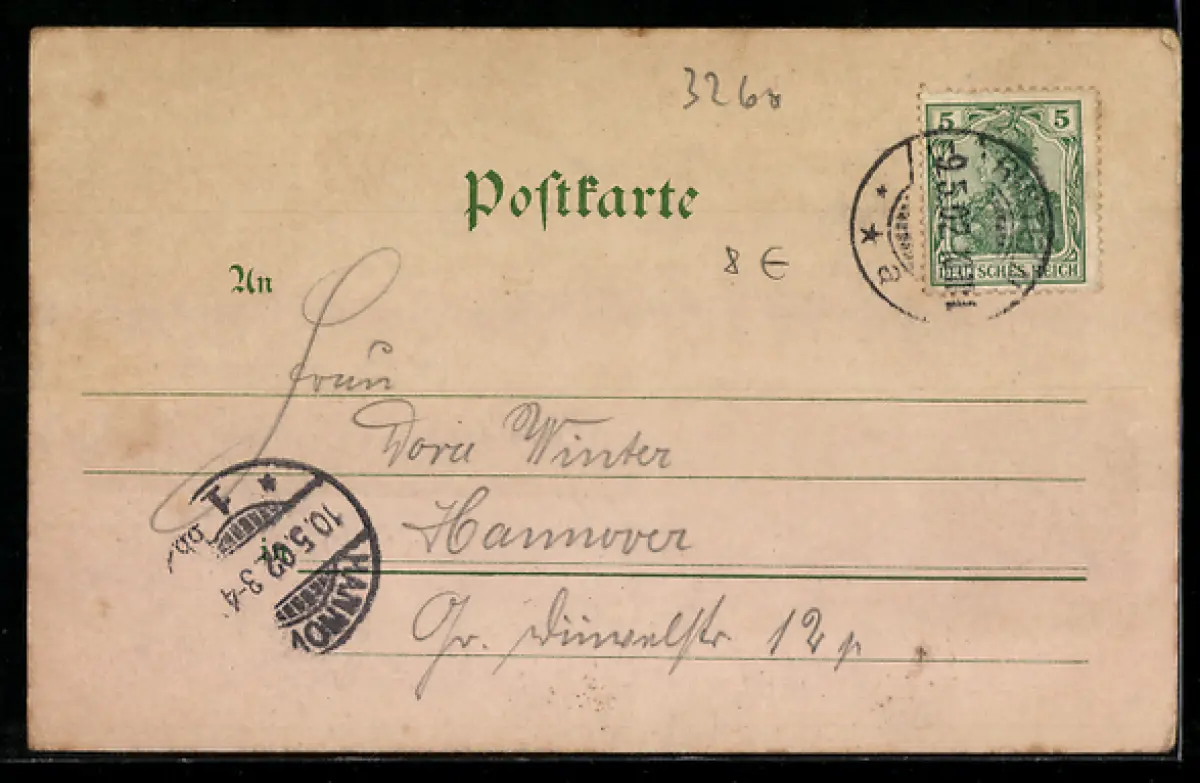 3260
5 5
9.5.02
DEUTSCHES REICH
a
Postkarte
8 €
An
Frau
Dora Winter
Hannover
in
Gr. Düwelstr 12 p
1
10.5.02. 3-4
HANNOV